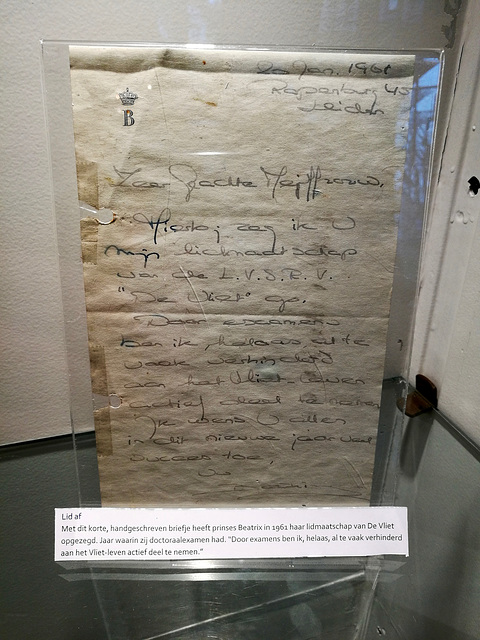 20 Jan. 1961
Rapenburg 45
Leiden
B
Zeer Geachte Mejuffrouw,
Hierbij zeg ik U
mijn lidmaatschap
van de L.V.S.R.V.
"De Vliet" op.
Door examens
ben ik, helaas, al te
vaak verhinderd
aan het Vliet-leven
actief deel te nemen
Ik wens U allen
in dit nieuwe jaar veel
succes toe,
Uw
Lid af
Met dit korte, handgeschreven briefje heeft prinses Beatrix in 1961 haar lidmaatschap van De Vliet
opgezegd. Jaar waarin zij doctoraalexamen had. "Door examens ben ik, helaas, al te vaak verhinderd
aan het Vliet-leven actief deel te nemen."